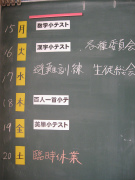 15 月 数学小テスト
16 火 漢字小テスト 各種委員会
17 水 避難訓練 生徒総会
18 木 百人一首小テ
19 金 英単小テスト
20 土 臨時休業